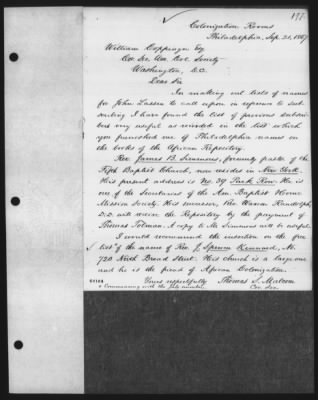 191.
Colonization Rooms
Philadelphia, Sep. 21, 1867
William Coppinger Esq
Cor. Sec. Am. Col. Society
Washington, D.C.
Dear Sir
In making out lists of names
for John to call upon in reference to sub-
scribing I have found the list of previous subscri-
bers very useful as recorded in the list which
you furnished me of Philadelphia names on
the books of the African Repository.
Rev. James B. Simmons, formerly pastor of the
Fifth Baptist Church, now resides in New York.
His present address is No. 39 Park Row. He is
one of the Secretaries of the Am. Baptist Home
Mission Society. His successor, Rev. Warren Randolph,
D.D. will receive the Repository by the payment of
Thomas Tolman. A copy to Mr. Simmons will be useful.
I would recommend the insertion on the free
list of the name of Rev. J. Spencer Kennard, No.
720 North Broad Street. His church is a large one
and he is the friend of African Colonization.
Yours respectfully
Thomas S. Malcom
Cor. Sec.
Commencing with the July number.